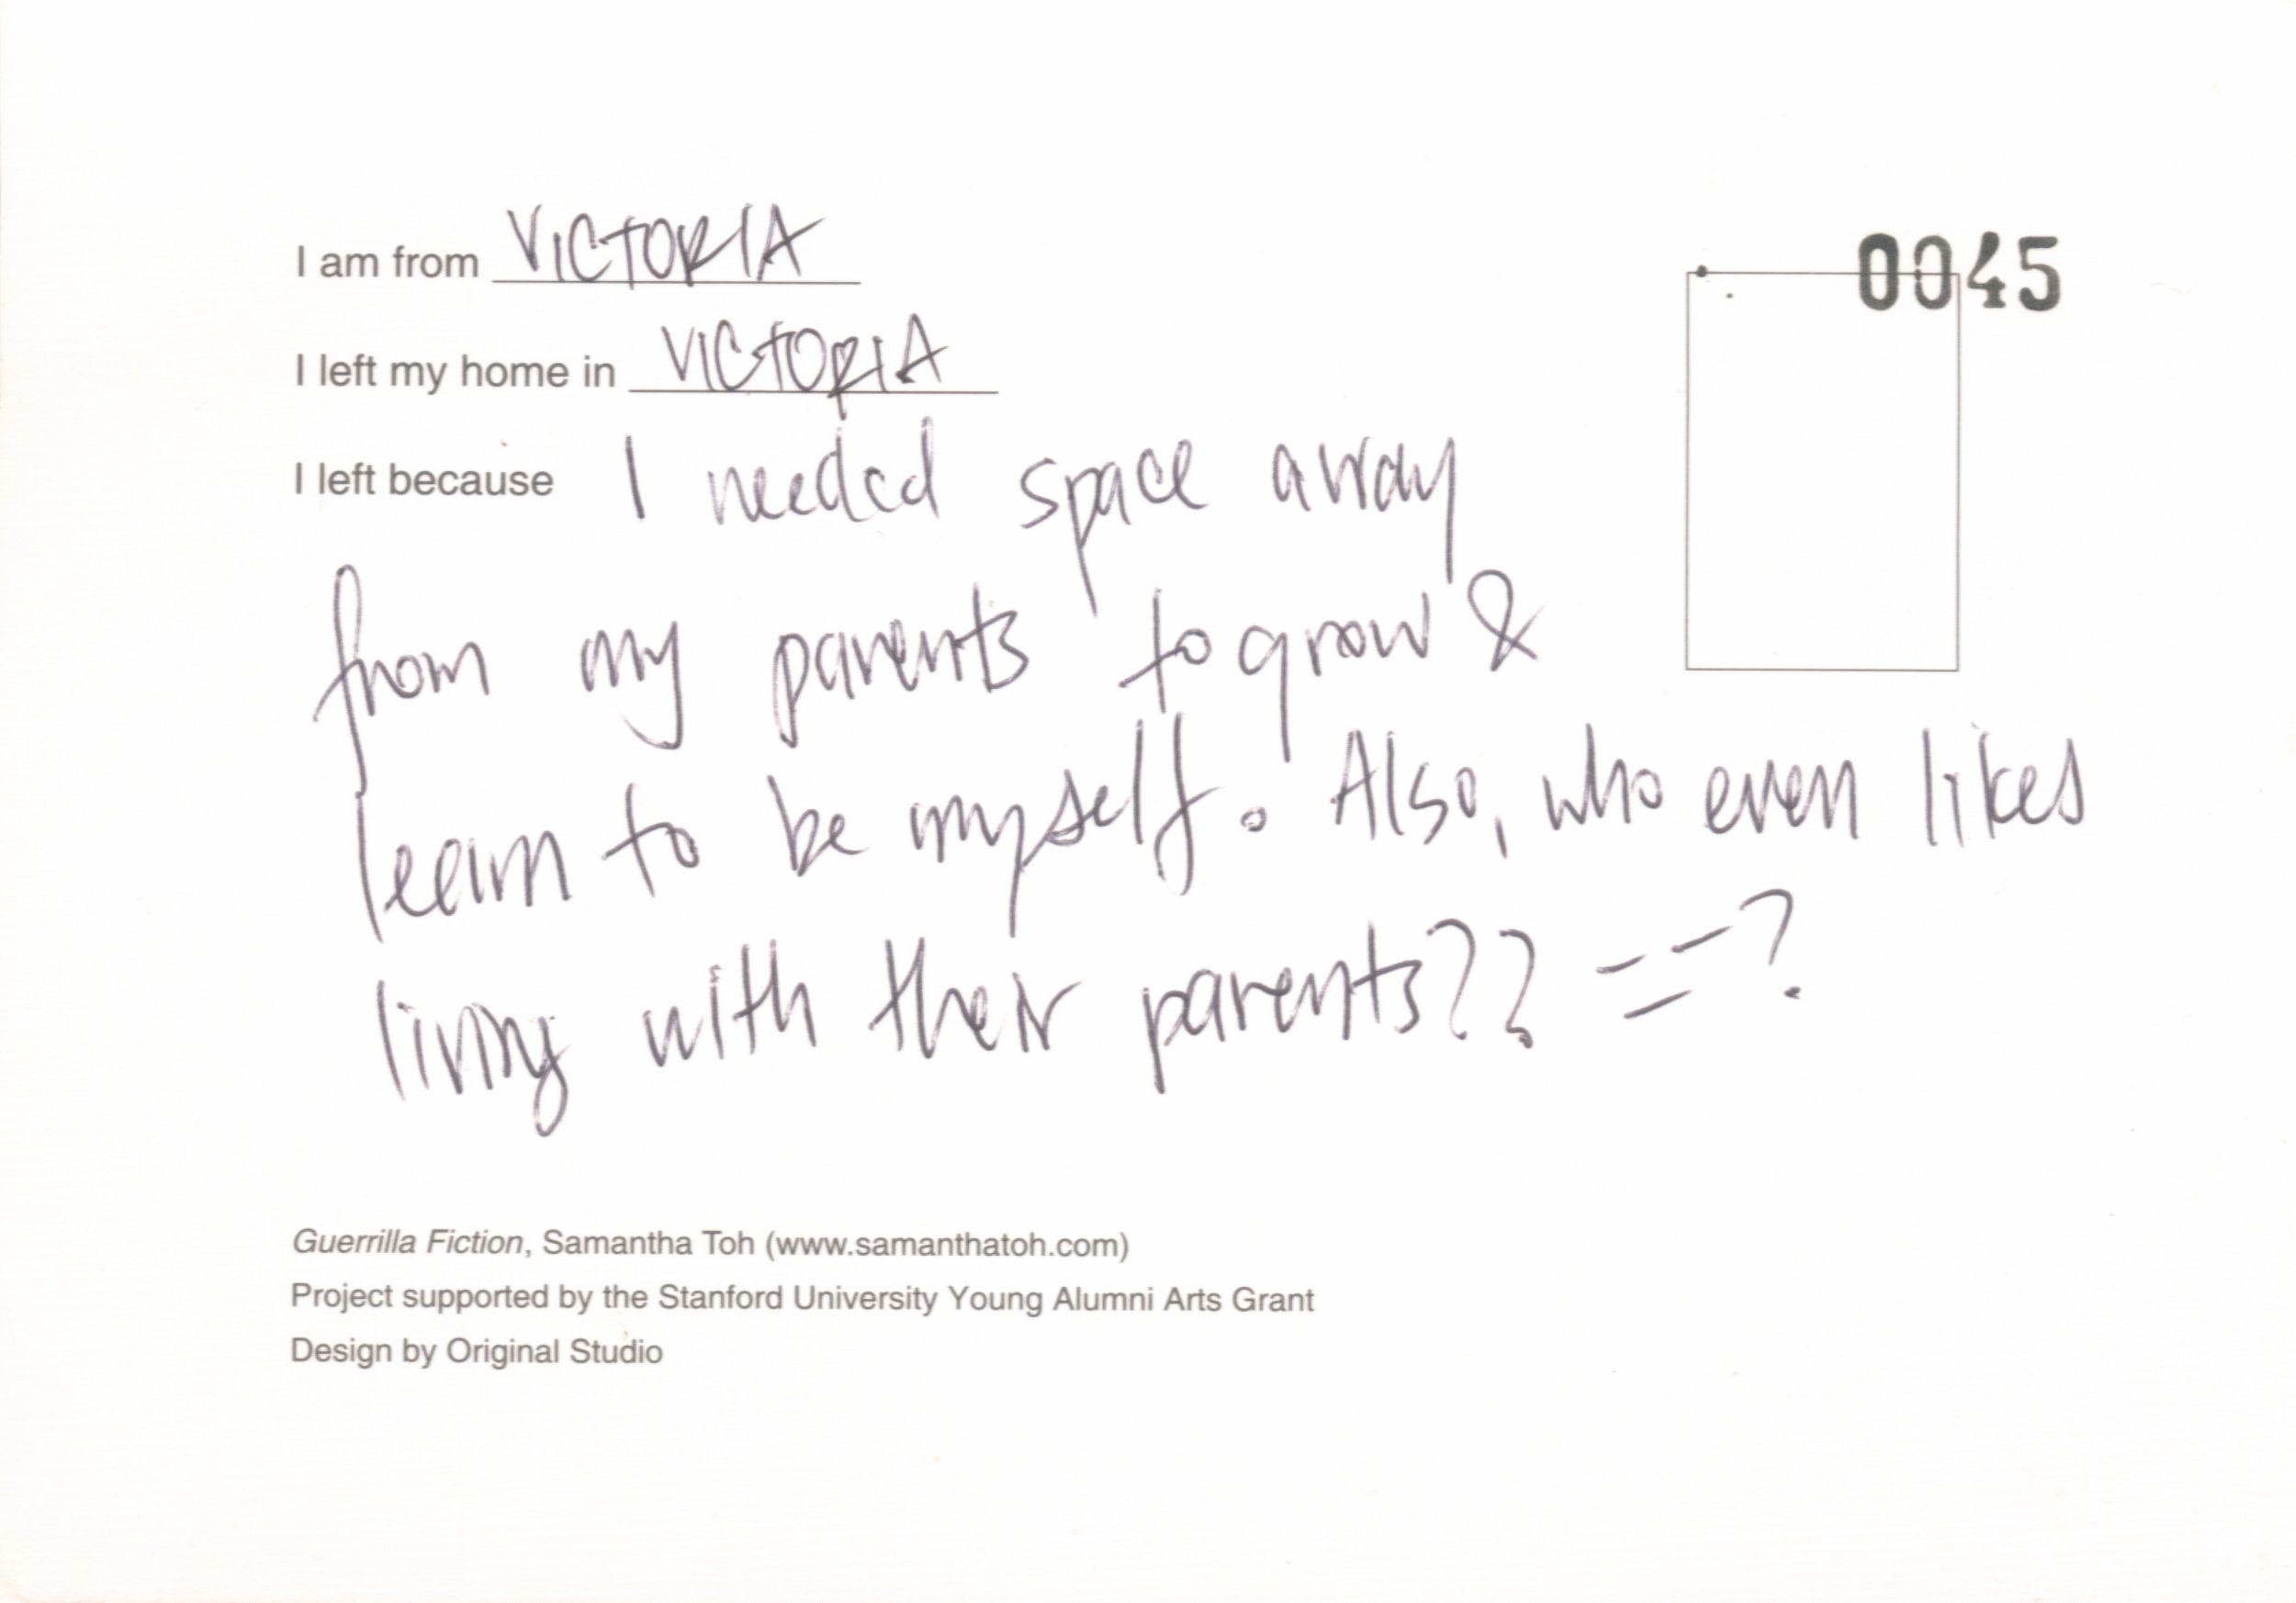 I am from VICTORIA
0045
I left my home in VICTORIA
I left because I needed space away
from my parents to grow &
learn to be myself. Also, who even likes
living with their parents?? = – ?
Guerrilla Fiction, Samantha Toh (www.samanthatoh.com)
Project supported by the Stanford University Young Alumni Arts Grant
Design by Original Studio